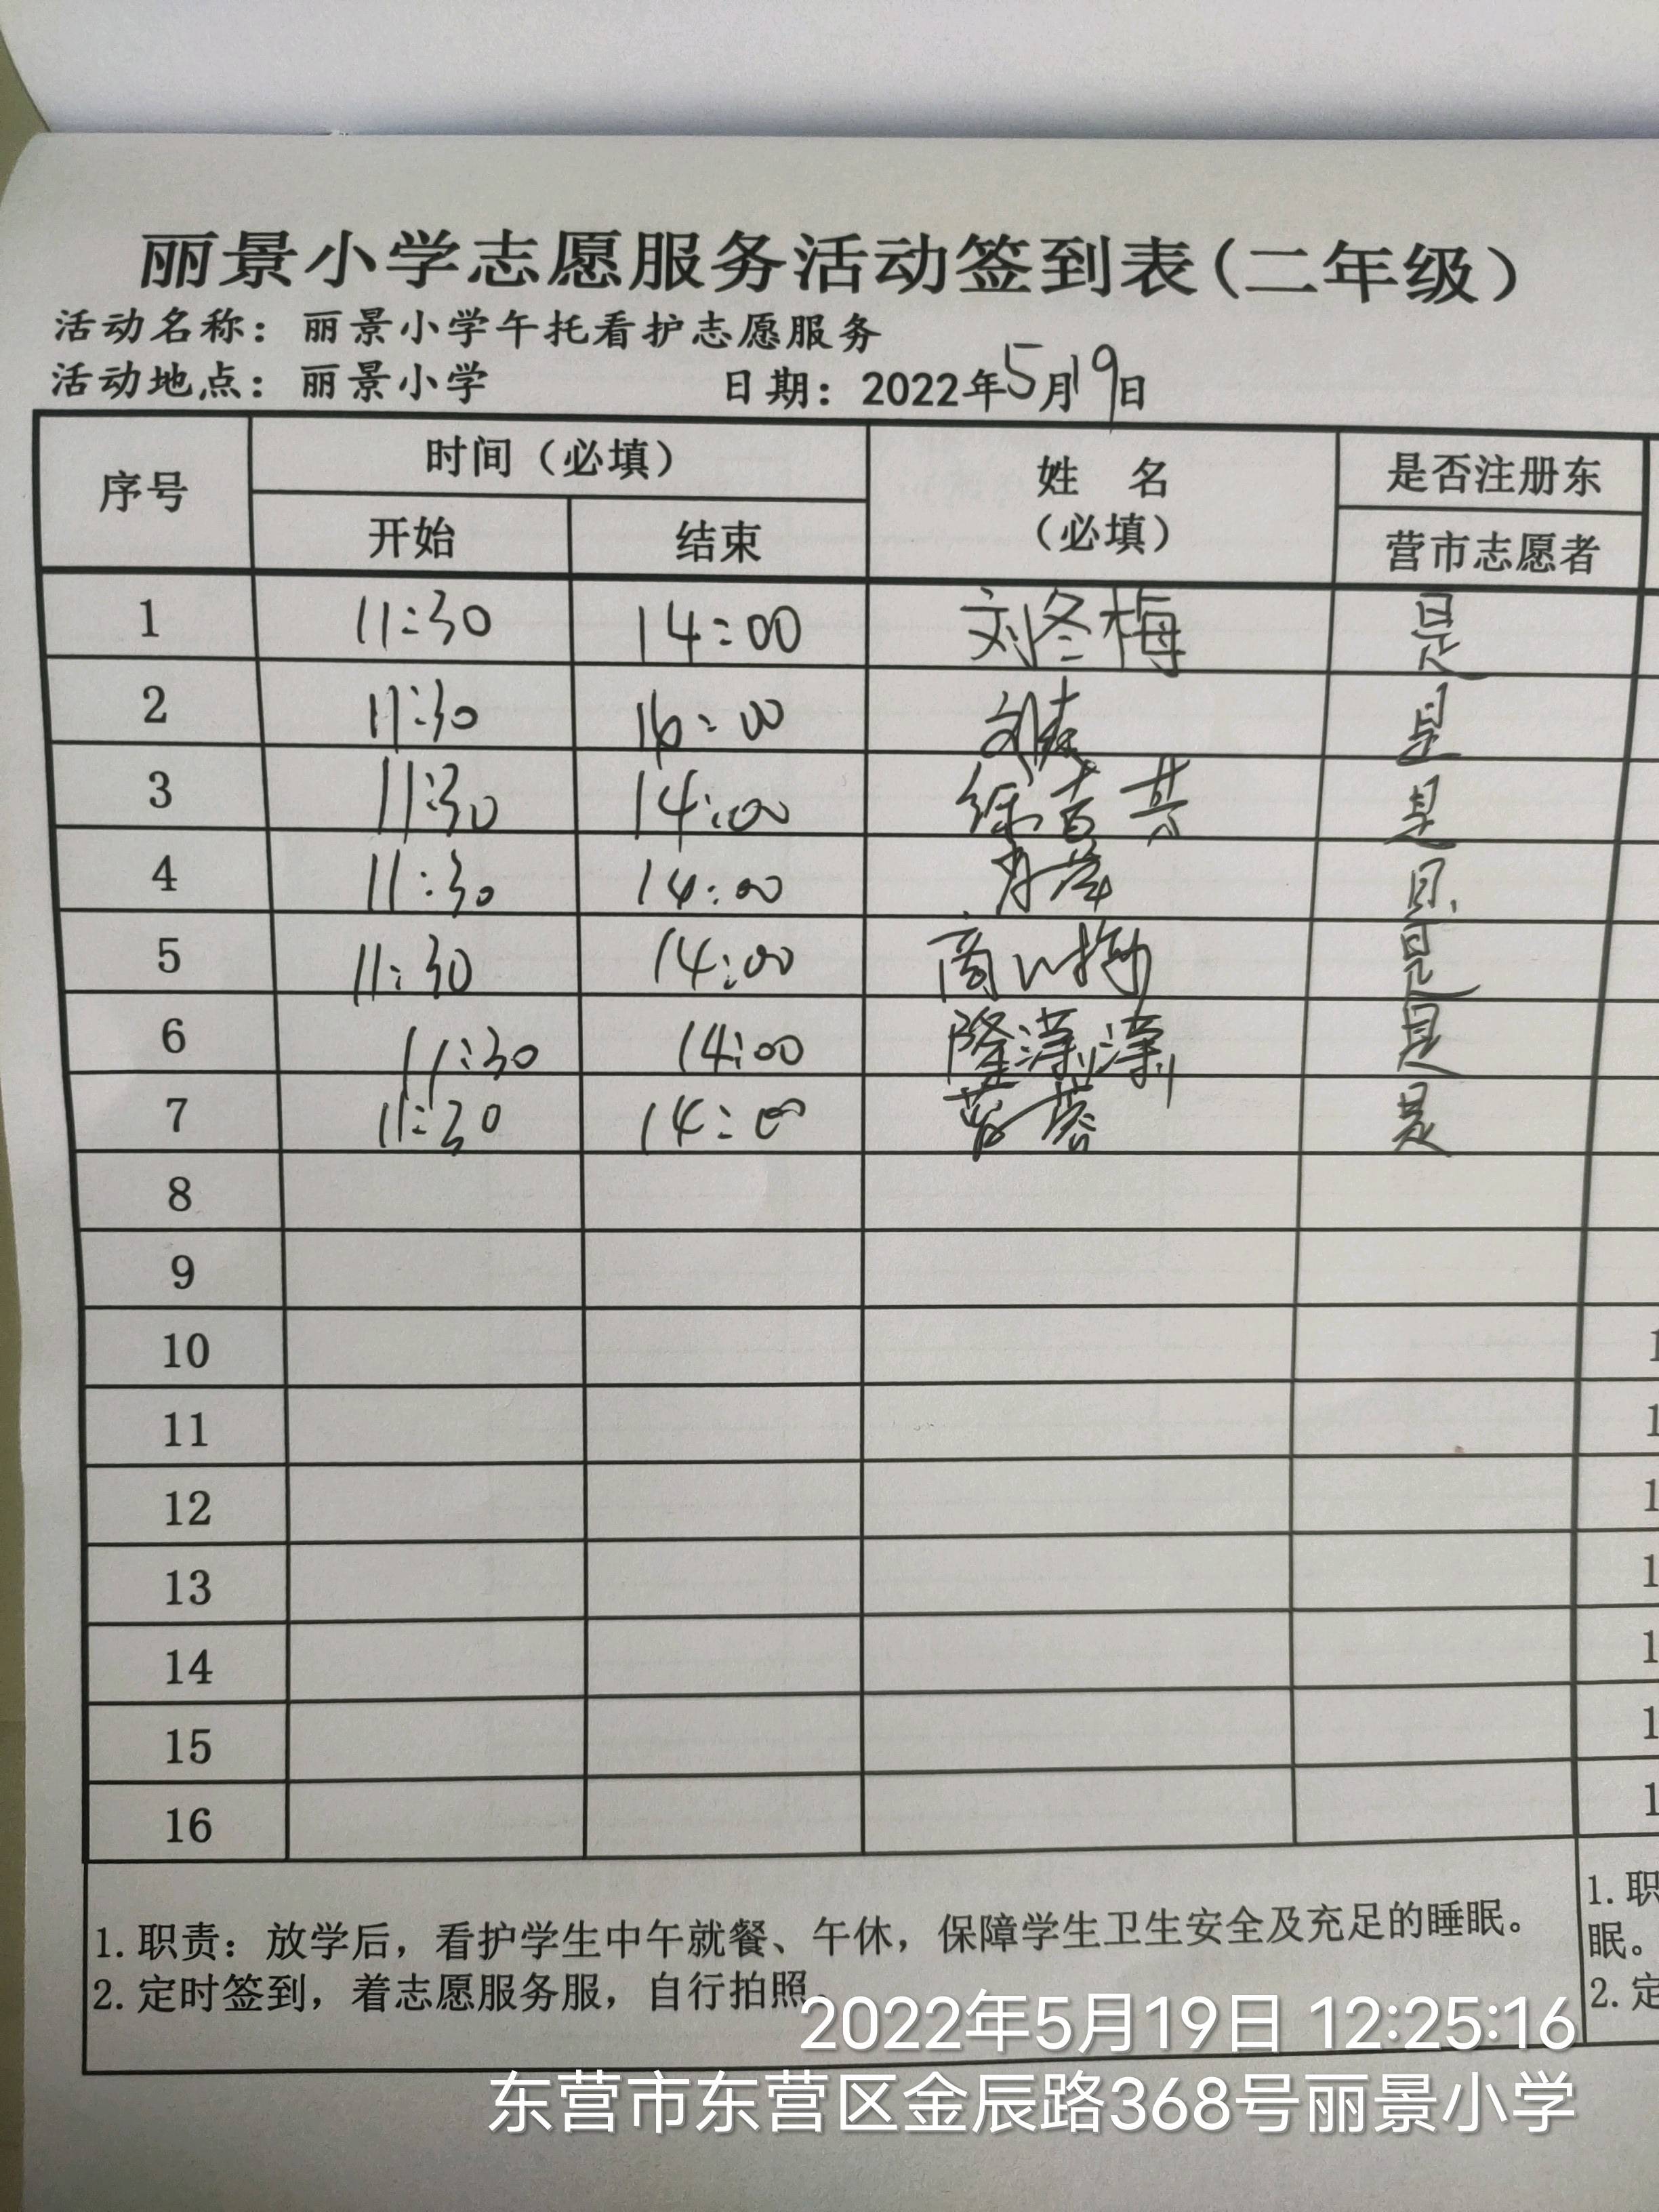 丽景小学志愿服务活动签到表(二年级)
活动名称：丽景小学午托看护志愿服务
活动地点：丽景小学 日期：2022年5月19日
序号 时间（必填） 姓 名 是否注册东
开始 结束 （必填） 营市志愿者
1 11:30 14:00 刘冬梅 是
2 11:30 16:00 是
3 11:30 14:00 是
4 11:30 14:00 是
5 11:30 14:00 商 是
6 11:30 14:00 隆潇潇 是
7 11:30 14:00 是
8
9
10
11
12
13
14
15
16
1.职责：放学后，看护学生中午就餐、午休，保障学生卫生安全及充足的睡眠。
2.定时签到，着志愿服务服，自行拍照。
1.职
眠。
2.定
2022年5月19日 12:25:16
东营市东营区金辰路368号丽景小学